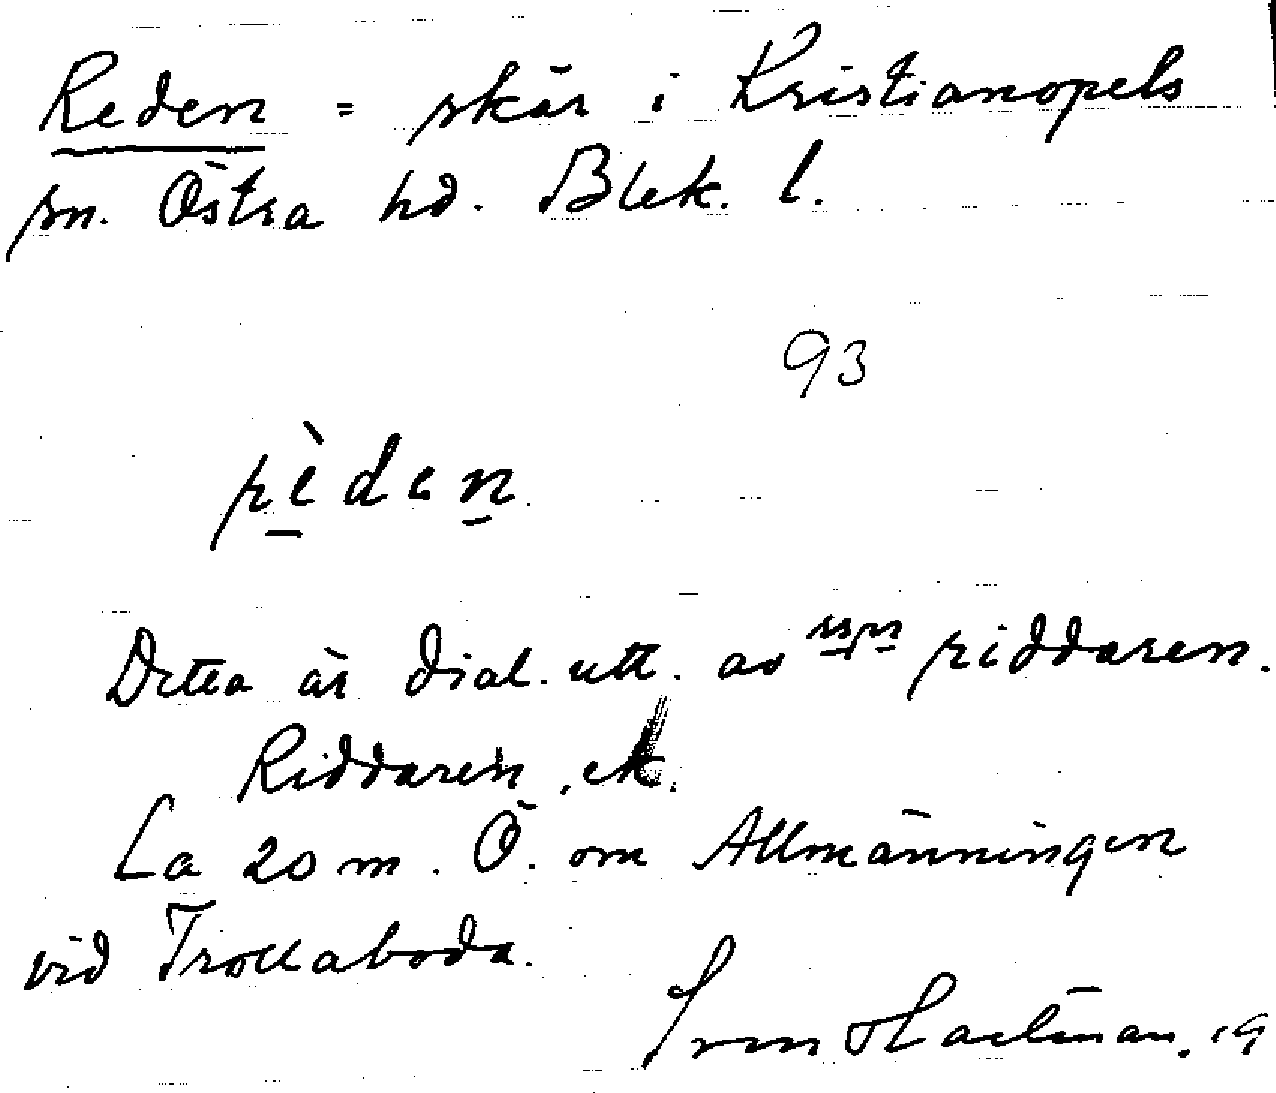 Reden = skär i Kristianopels
sn. Östra hd. Blek. l.
93
rèden
Detta är dial. utt. av rspr riddaren.
Riddaren, ek.
La 20 m. Ö. om Allmänningen
vid Trollaboda.
Hartman. 19